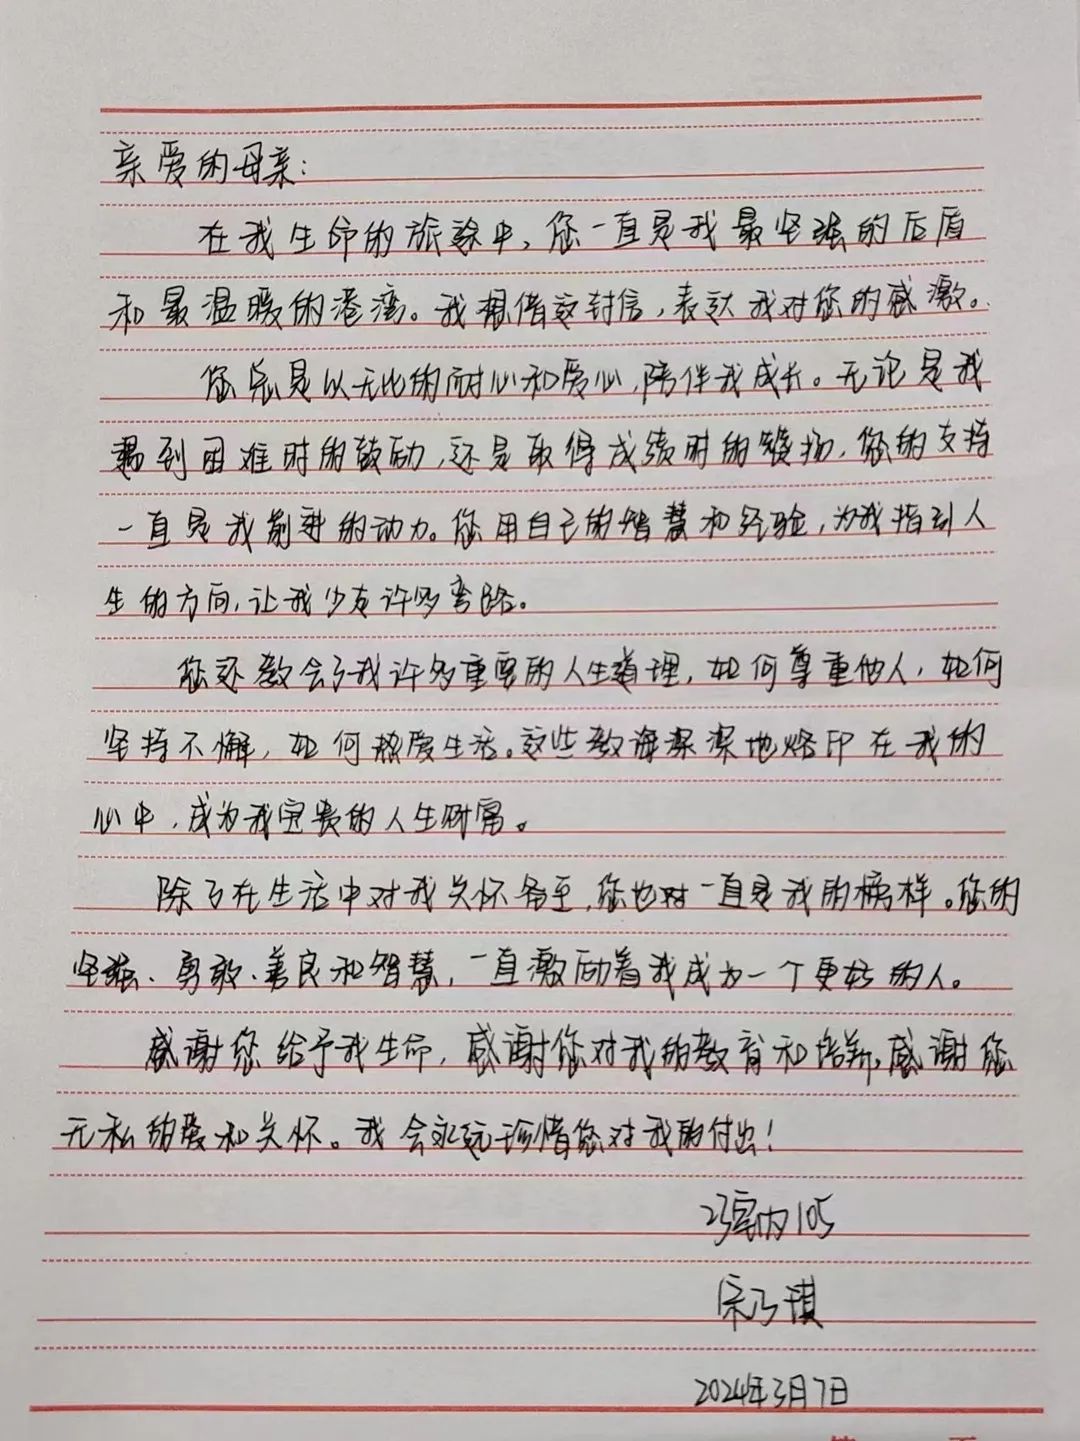 亲爱的母亲:
在我生命的旅途中,您一直是我最坚强的后盾
和最温暖的港湾。我想借这封信,表达我对您的感激。
您总是以无比的耐心和爱心,陪伴我成长。无论是我
遇到困难时的鼓励,还是取得成绩时的赞扬,您的支持
一直是我前进的动力。您用自己的智慧和经验,为我指引人
生的方向,让我少走许多弯路。
您还教会了我许多重要的人生道理,如何尊重他人,如何
坚持不懈,如何热爱生活。这些教诲深深地烙印在我的
心中,成为我宝贵的人生财富。
除了在生活中对我关怀备至,您也对一直是我的榜样。您的
坚强、勇敢、善良和智慧,一直激励着我成为一个更好的人。
感谢您给予我生命,感谢您对我的教育和培养,感谢您
无私的爱和关怀。我会永远珍惜您对我的付出!
23室内105
宗乃琪
2024年3月7日